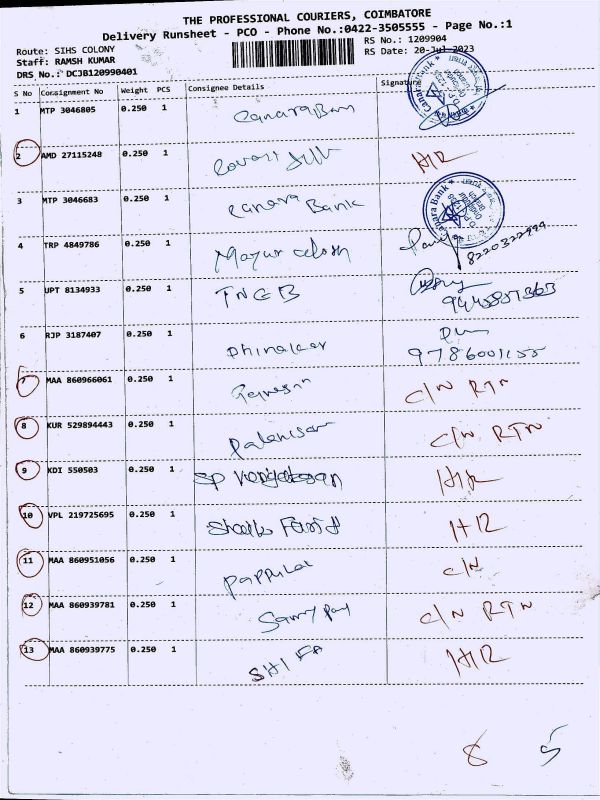 THE PROFESSIONAL COURIERS, COIMBATORE
Delivery Runsheet - PCO - Phone No.:0422-3505555 - Page No.:1
Route: SIHS COLONY
RS No.: 1209904
Staff: RAMSH KUMAR
RS Date: 20-Jul-2023
DRS No.: DCJB120990401
S No Consignment No Weight PCS Consignee Details Signature
1 MTP 3046805 0.250 1 Canara Bank
2 AMD 27115248 0.250 1 H/R
3 MTP 3046683 0.250 1 Canara Bank
4 TRP 4849786 0.250 1 Mayur 8220322999
5 UPT 8134933 0.250 1 TNGB
6 RJP 3187407 0.250 1 Dhinakar 9786001155
7 MAA 860966061 0.250 1 C/N RTN
8 KUR 529894443 0.250 1 Palanisam C/N RTN
9 KDI 550503 0.250 1 SP H/R
10 VPL 219725695 0.250 1 Shaik Farid H/R
11 MAA 860951056 0.250 1 Pappulal C/N
12 MAA 860939781 0.250 1 C/N RTN
13 MAA 860939775 0.250 1 SHIFA H/R
8 5